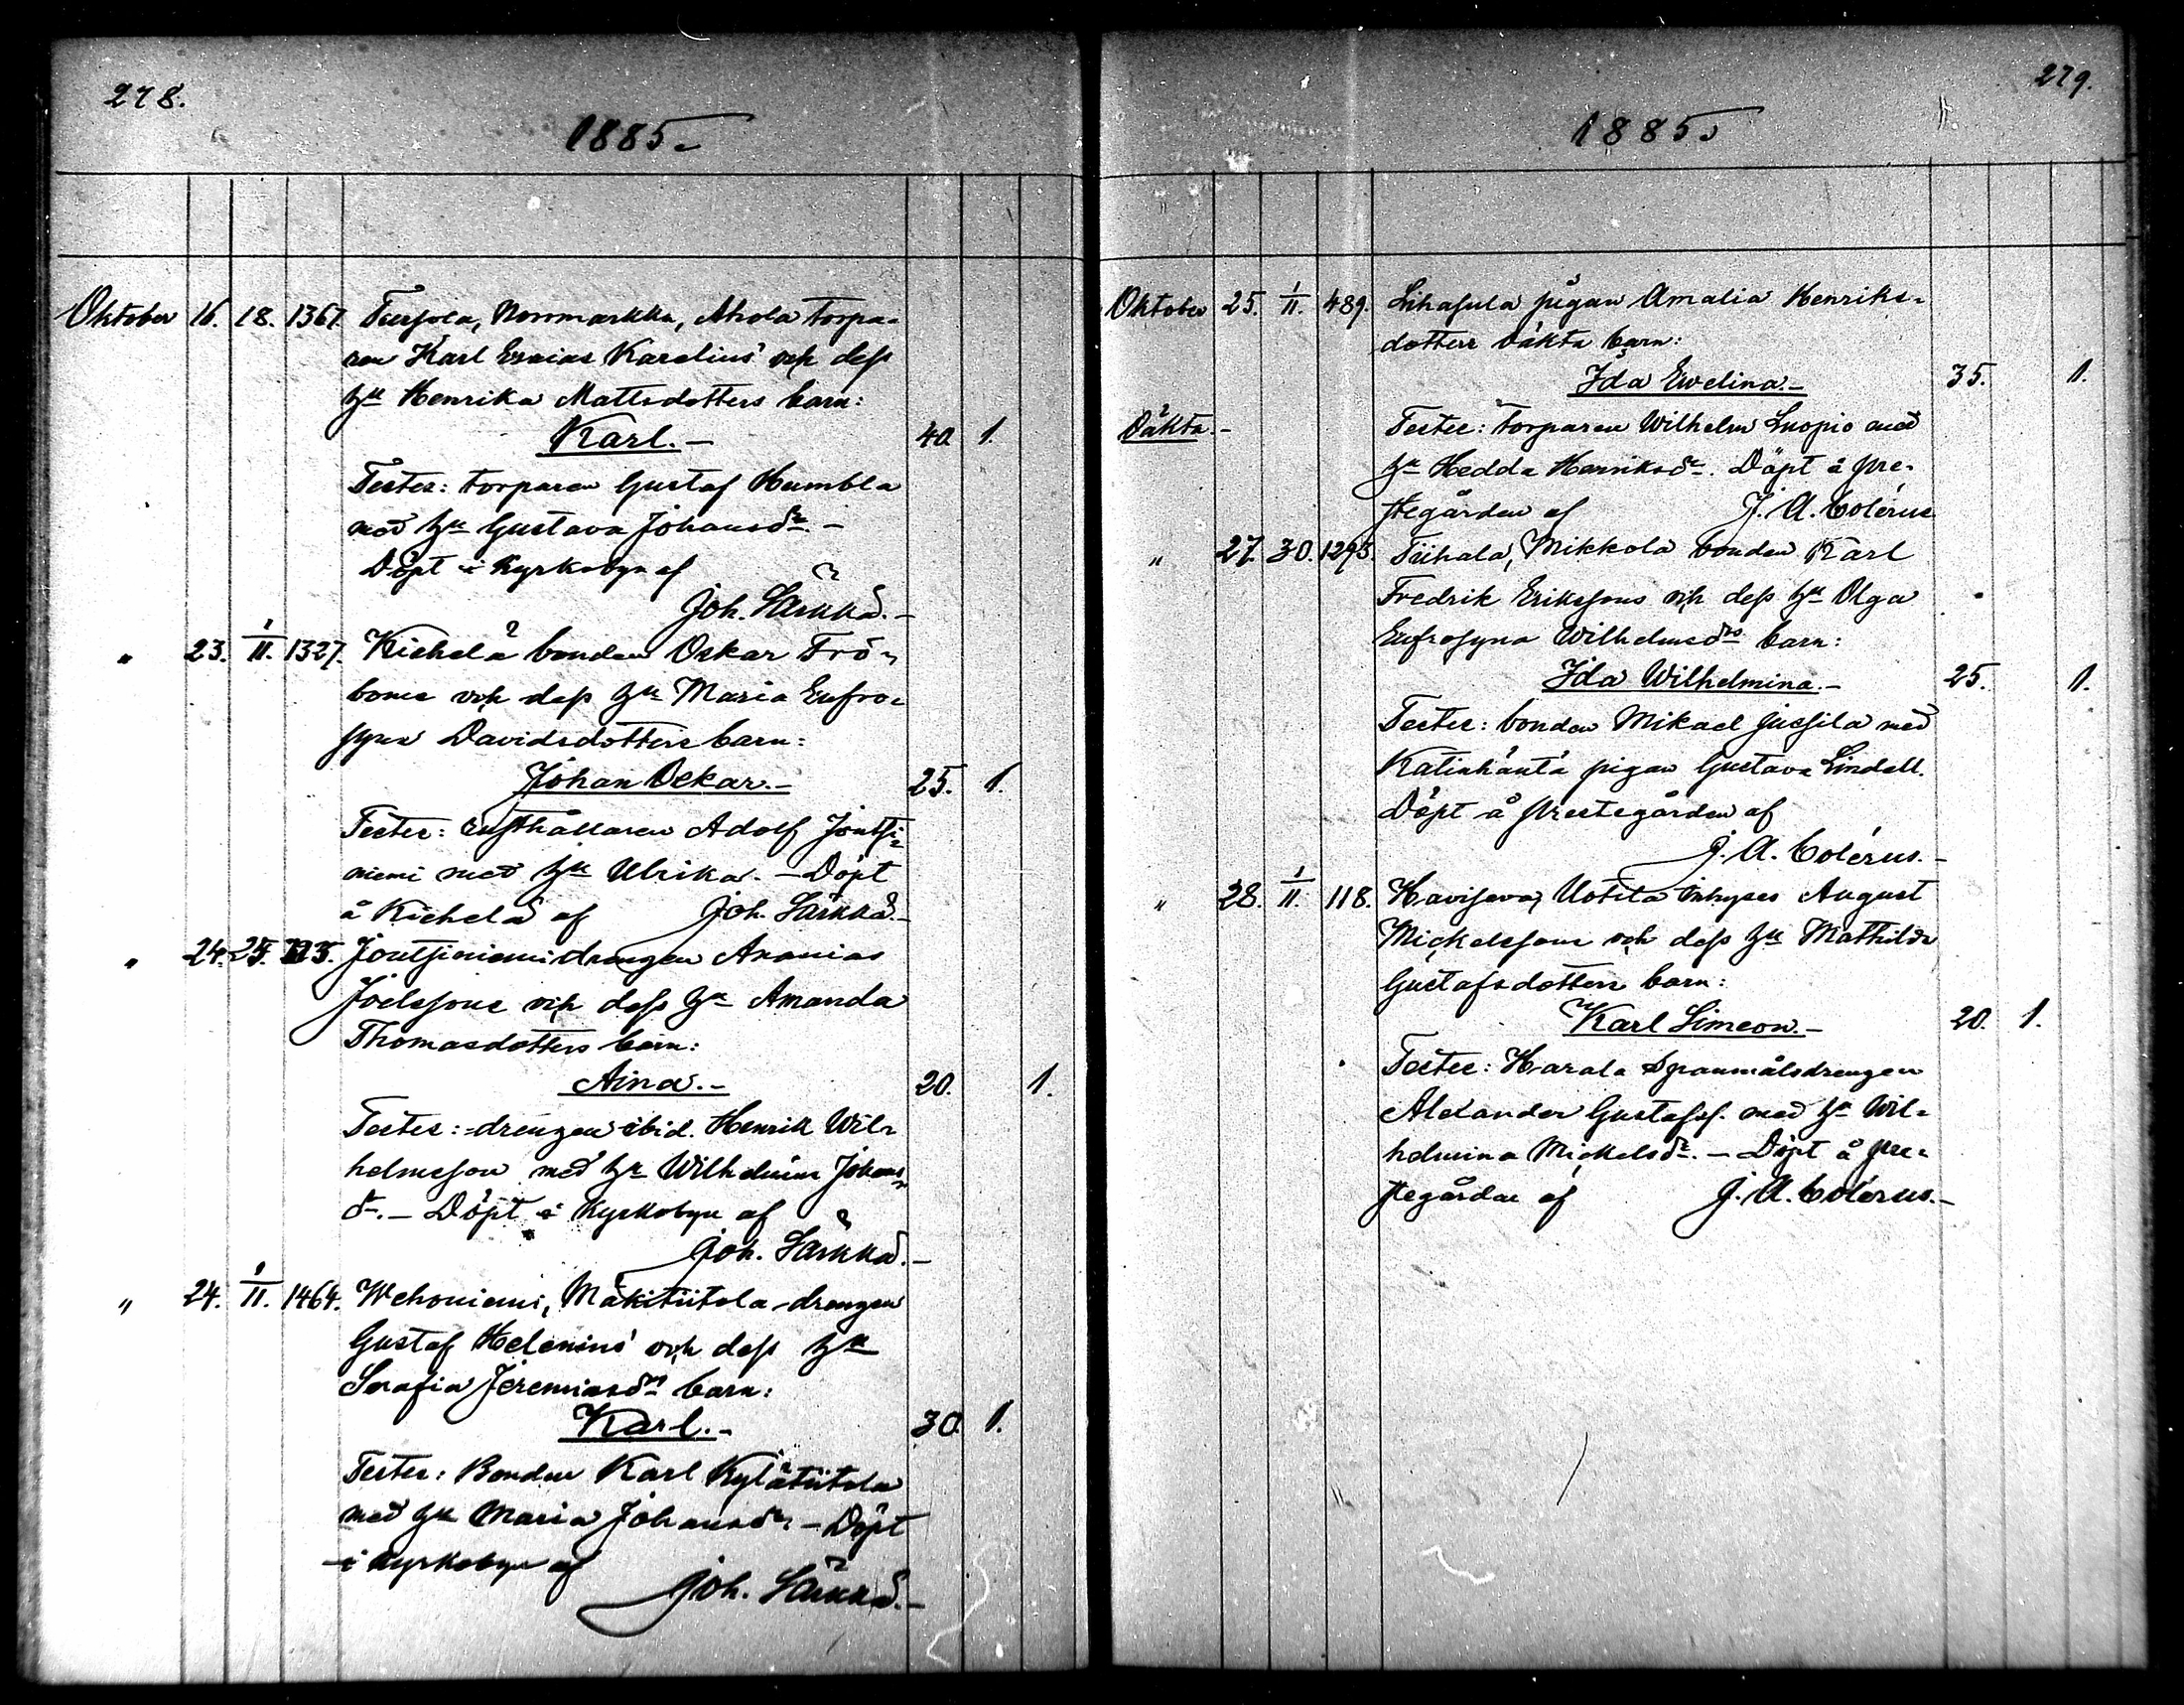 278.
1885.
Oktober 16. 18. 1367. Tursola, Norrmarkku, Ahola torpa-
ren Karl Esaias Karelius' och dess
hu Henrika Mattsdotters barn:
Karl.- 40. 1.
Testes: torparen Gustaf Humbla
med hu Gustava Johansdr.-
Döpt i Kyrkobyn af
Joh. Särkkä.-
" 23. 1/11. 1327. Kiehelä bonden Oskar Frö-
boms och dess hu Maria Eufro-
syna Davidsdotters barn:
Johan Oskar.- 25. 1.
Testes: rusthållaren Adolf Jontsi-
niemi med hu Ulrika.- Döpt
å Kiehelä af Joh. Särkkä.-
" 24. 25. Jontsiniemi drengen Ananias
Joelssons och dess hu Amanda
Thomasdotters barn:
Aina.- 20. 1.
Testes: drengen ibid. Henrik Wil-
helmsson med hu Wilhelmina Johans-
dr.- Döpt i Kyrkobyn af
Joh. Särkkä.-
" 24. 1/11. 1464. Wehoniemi, Mäkitiitola drengen
Gustaf Helenius' och dess hu
Serafia Jeremiasdrs barn:
Karl.- 30. 1.
Testes: Bonden Karl Kylätiitola
med hu Maria Johansdr.- Döpt
i Kyrkobyn af
Joh. Särkkä.-
279.
1885.
Oktober 25. 1/11. 489. Lihasula pigan Amalia Henriks-
dotters oäkta barn:
Ida Ewelina.- 35. 1.
Oäkta.- Testes: torparen Wilhelm Luopio med
hu Hedda Henriksdr. Döpt å pre-
stegården af J. A. Colérus
" 27. 30. 1293. Tiihala, Mikkola bonden Karl
Fredrik Erikssons och dess hu Olga
Eufrosyna Wilhelmsdrs barn:
Ida Wilhelmina.- 25. 1.
Testes: bonden Mikael Jussila med
Katinhäntä pigan Gustava Lindell.
Döpt å prestegården af
J. A. Colérus.-
" 28. 1/11. 118. Haviseva, Uotila inhyses August
Mickelssons och dess hu Mathilda
Gustafsdotters barn:
Karl Simeon.- 20. 1.
Testes: Harala Spanmålsdrengen
Alexander Gustafss. med hu Wil-
helmina Mickelsdr.- Döpt å pre-
stegården af J. A. Colérus.-